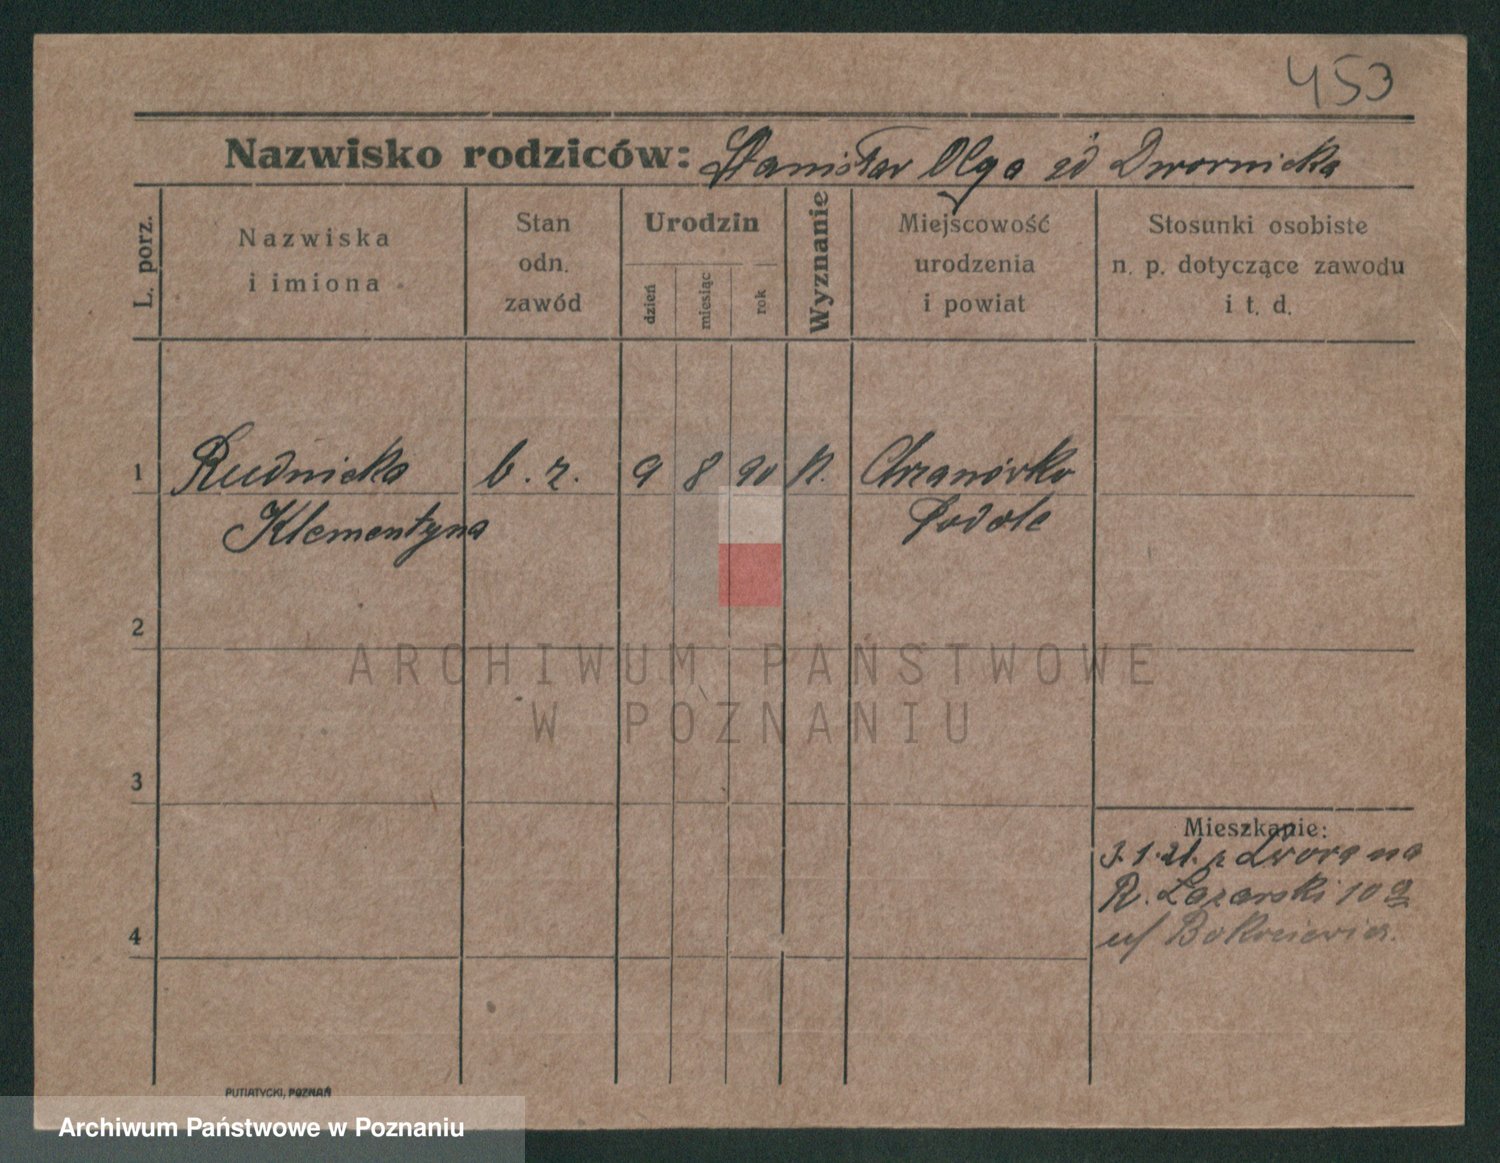 453
Nazwisko rodziców: Stanisław Olga zd Dwornicka
L. porz.
Nazwiska
i imiona
Stan
odn.
zawód
Urodzin
dzień
miesiąc
rok
Wyznanie
Miejscowość
urodzenia
i powiat
Stosunki osobiste
n. p. dotyczące zawodu
i t. d.
1 Rudnicka b. z. 9 8 90 k. Chzanówka
Klementyna Podole
2
ARCHIWUM PAŃSTWOWE
W POZNANIU
3
Mieszkanie:
3.1.21. z
R. 10
4
u/
PUTIATYCKI, POZNAŃ
Archiwum Państwowe w Poznaniu